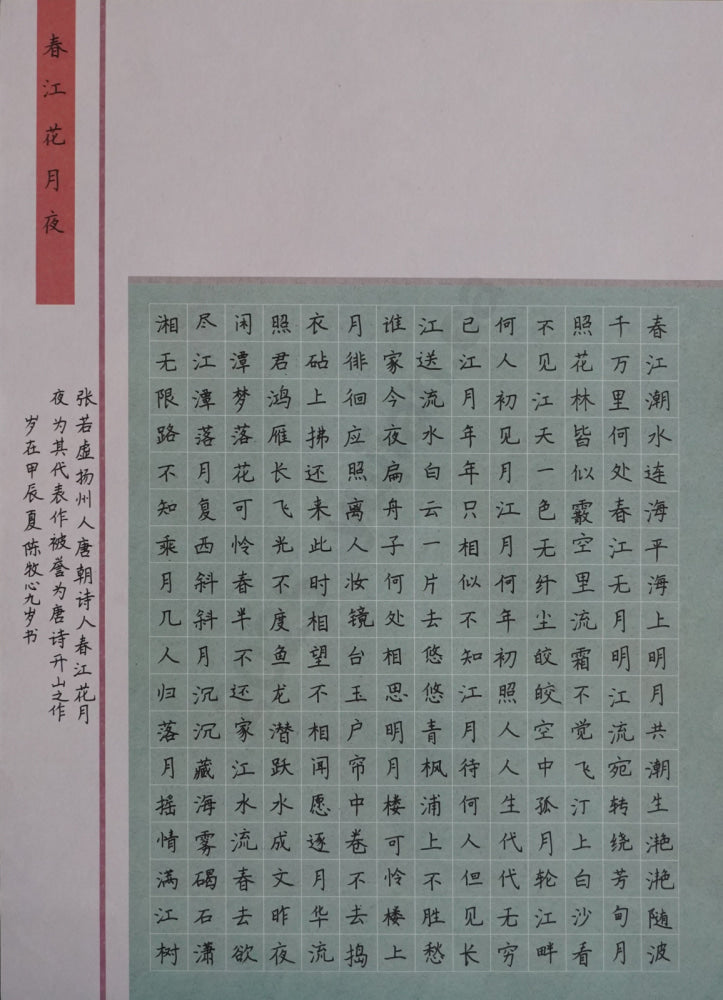 春江花月夜
春江潮水连海平海上明月共潮生滟滟随波
千万里何处春江无月明江流宛转绕芳甸月
照花林皆似霰空里流霜不觉飞汀上白沙看
不见江天一色无纤尘皎皎空中孤月轮江畔
何人初见月江月何年初照人人生代代无穷
已江月年年只相似不知江月待何人但见长
江送流水白云一片去悠悠青枫浦上不胜愁
谁家今夜扁舟子何处相思明月楼可怜楼上
月徘徊应照离人妆镜台玉户帘中卷不去捣
衣砧上拂还来此时相望不相闻愿逐月华流
照君鸿雁长飞光不度鱼龙潜跃水成文昨夜
闲潭梦落花可怜春半不还家江水流春去欲
尽江潭落月复西斜斜月沉沉藏海雾碣石潇
湘无限路不知乘月几人归落月摇情满江树
张若虚扬州人唐朝诗人春江花月
夜为其代表作被誉为唐诗开山之作
岁在甲辰夏陈牧心九岁书